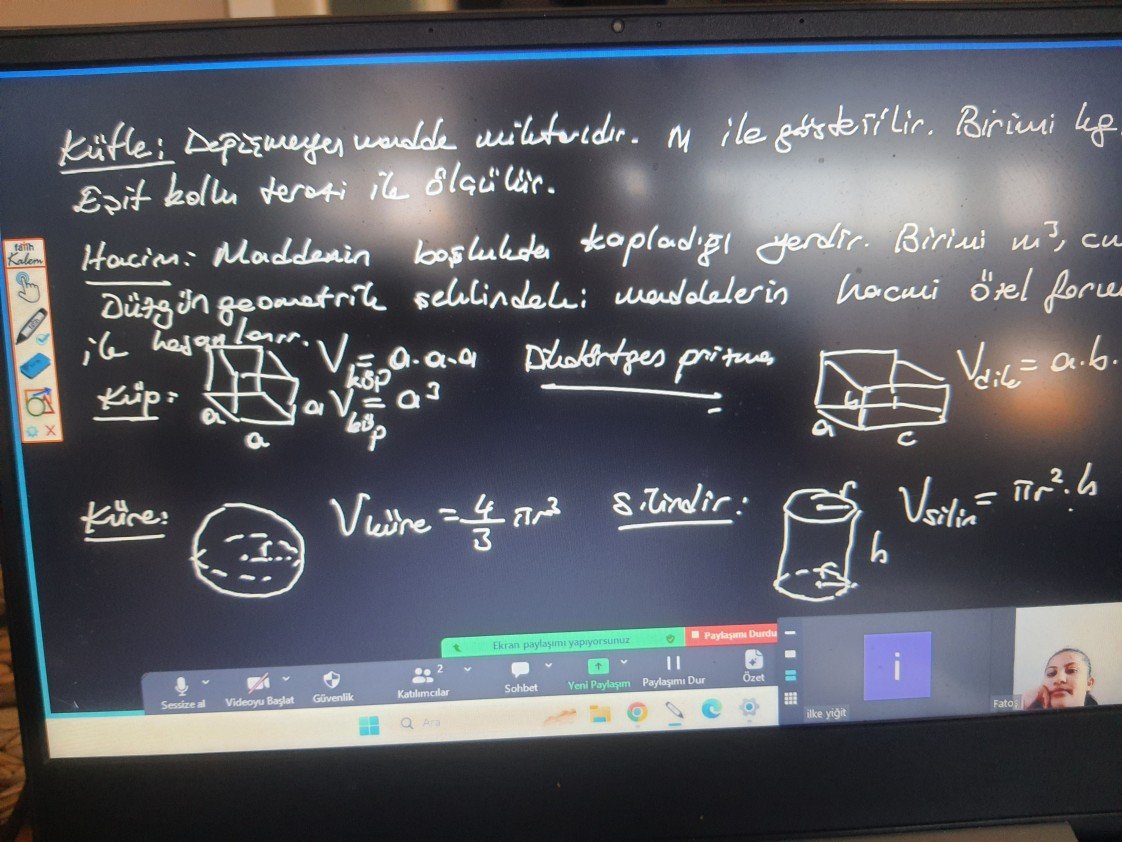 Kütle: Değişmeyen madde miktarıdır. m ile gösterilir. Birimi kg.
Eşit kollu terazi ile ölçülür.
Hacim: Maddenin boşlukda kapladığı yerdir. Birimi m³,
Düzgün geometrik şeklindeki maddelerin hacmi özel
ile hesaplanır.
Küp: a a a V küp = a.a.a
V küp = a³
Dikdörtges prizma a b c V dik = a.b.
Küre: r V küre = 4/3 πr³
Silindir: r r h V silin = πr².h
fatih
Kalem
Ekran paylaşımı yapıyorsunuz Paylaşımı Durdu
Sessize al Videoyu Başlat Güvenlik 2 Katılımcılar Sohbet Yeni Paylaşım Paylaşımı Dur Özet
Ara
i
ilke yiğit
Fatoş